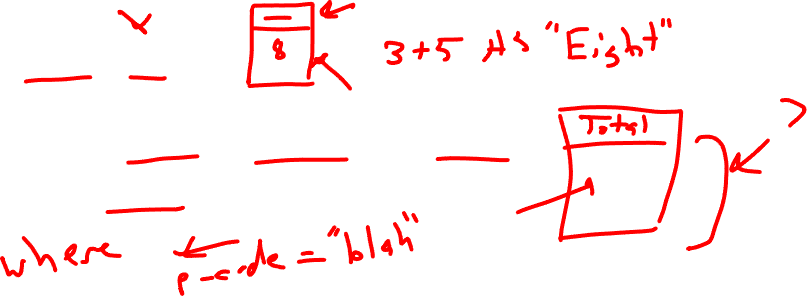 8
3+5 As "Eight"
Total
where p-code = "blah"